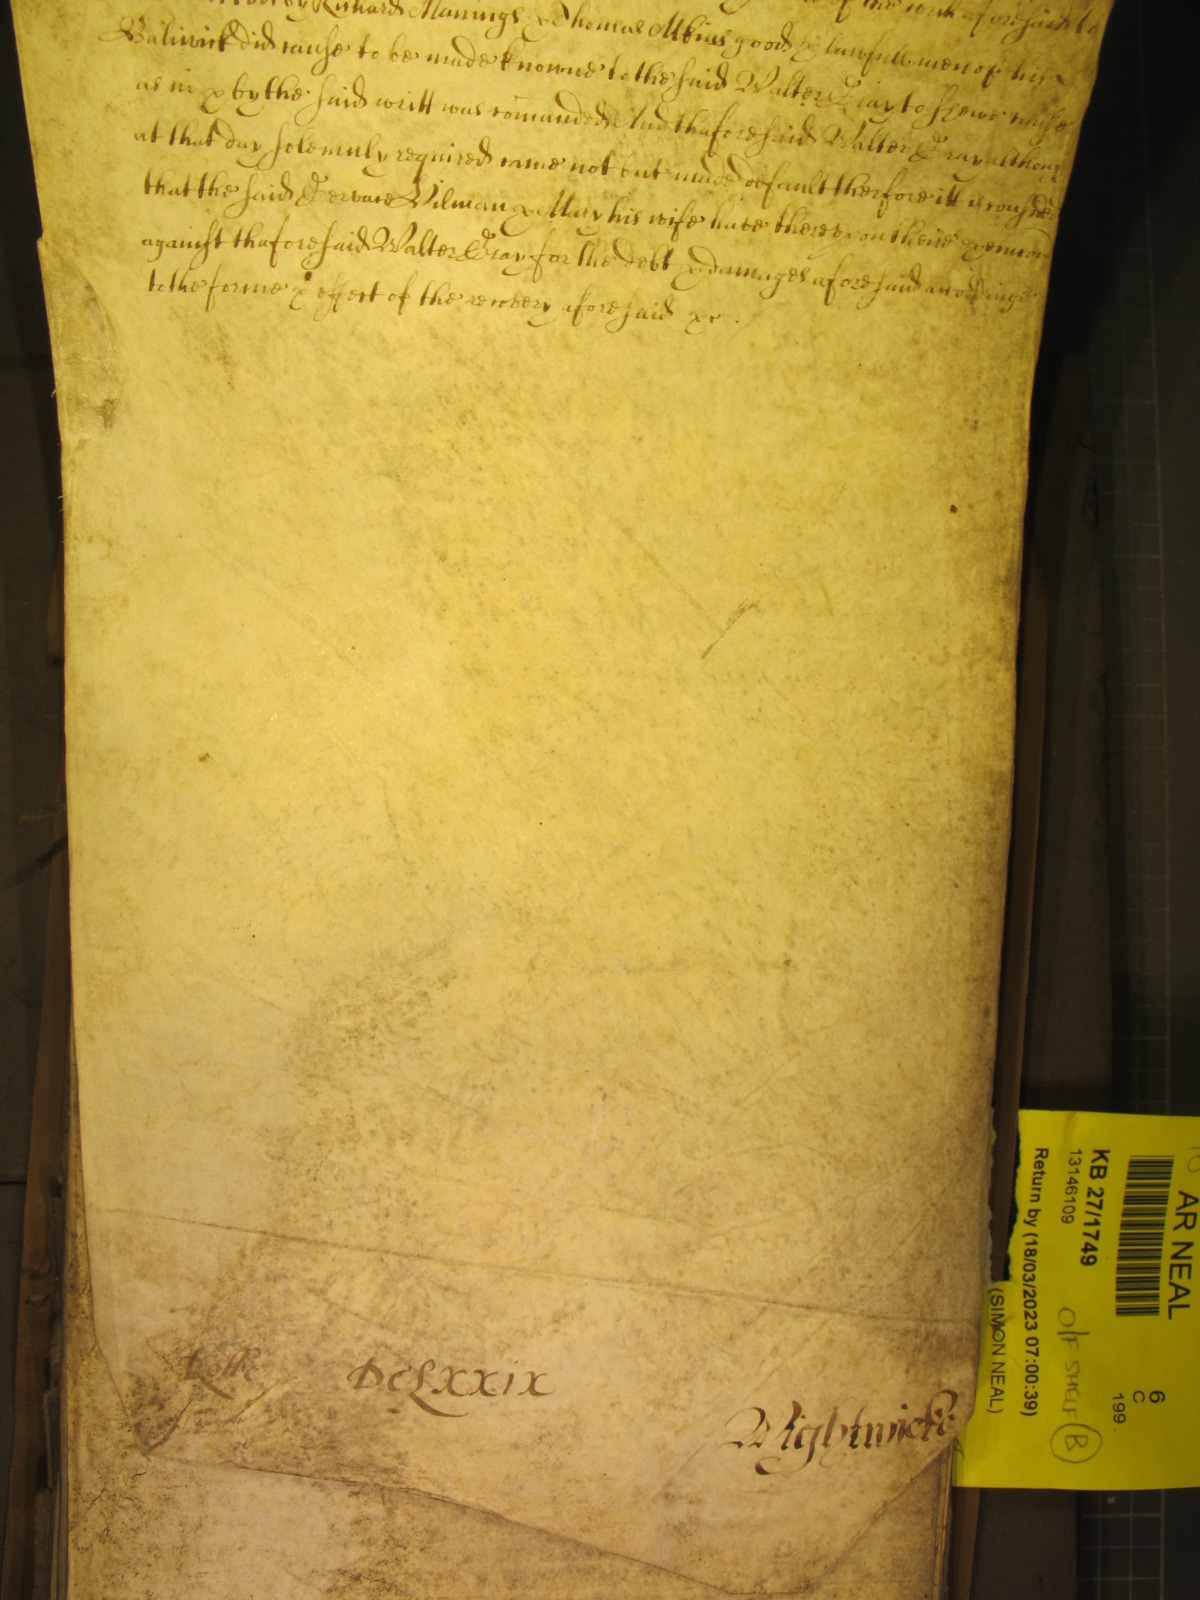 by Richard Mannings & Thomas Atkins good & lawfull men of his
Baliwick did cause to be made knowne to the said Walter Gray to shewe cause
as in & by the said writt was comanded And thaforesaid Walter Gray althoug
at that day solemnly required came not but made default therfore itt is consider
that the said Gervase Wilman & Mary his wife have thereupon theire execucon
against thaforesaid Walter Gray for the debt & damages aforesaid accordinge
to the forme & effect of the recovery aforesaid &c.
Rolle DCLXXIX
Wightwicke
AR NEAL
KB 27/1749
13146109
Return by (18/03/2023 07:00:39)
(SIMON NEAL)
O/F SHELF B
6
C
199